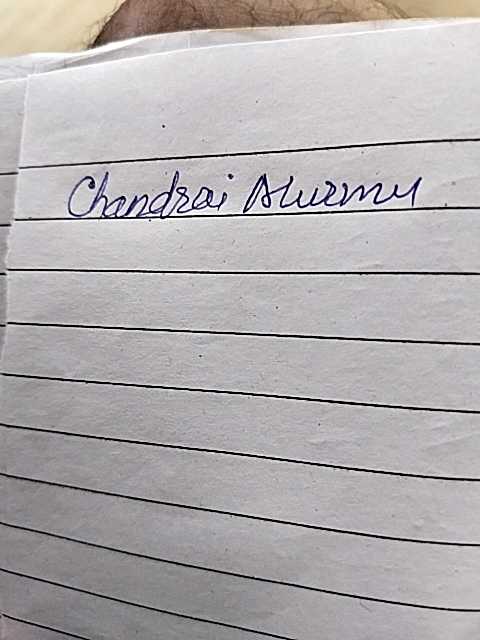 Chandrai Murmu